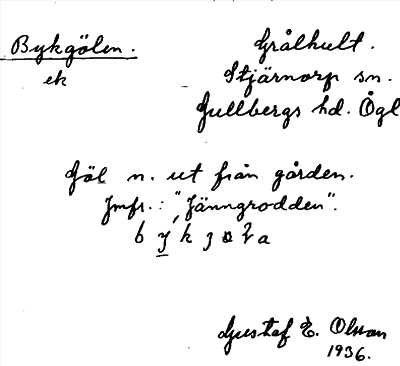 Bykgölen.
ek
Grålhult.
Stjärnorp sn.
Gullbergs hd. Ögl
Göl n. ut från gården.
Jmfr.: "Jänngrodden".
Gustaf E. Olsson
1936.